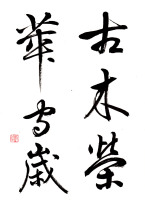 古木榮
華守歲